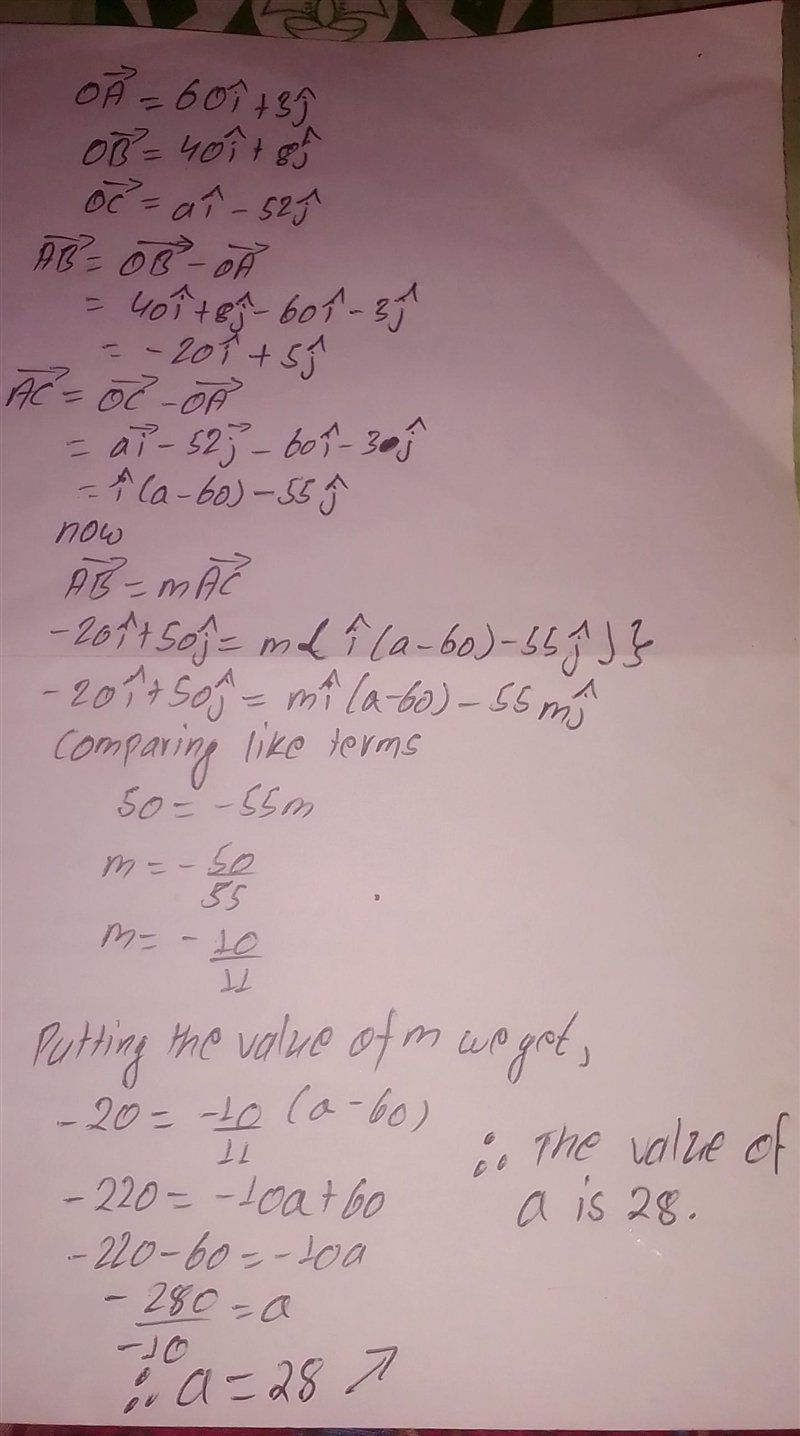 OA⃗ = 60î + 3ĵ
OB⃗ = 40î + 8ĵ
OC⃗ = aî - 52ĵ
AB⃗ = OB⃗ - OA⃗
= 40î + 8ĵ - 60î - 3ĵ
= -20î + 5ĵ
AC⃗ = OC⃗ - OA⃗
= ai⃗ - 52j⃗ - 60î - 30ĵ
= î(a-60) - 55ĵ
now
AB⃗ = mAC⃗
-20î + 50ĵ = m{î(a-60) - 55ĵ)}
-20î + 50ĵ = mî(a-60) - 55mĵ
Comparing like terms
50 = -55m
m = -50/55
m = -10/11
Putting the value of m we get,
-20 = -10/11 (a-60)
-220 = -10a + 60
-220 - 60 = -10a
-280/-10 = a
∴ a = 28
∴ The value of
a is 28.